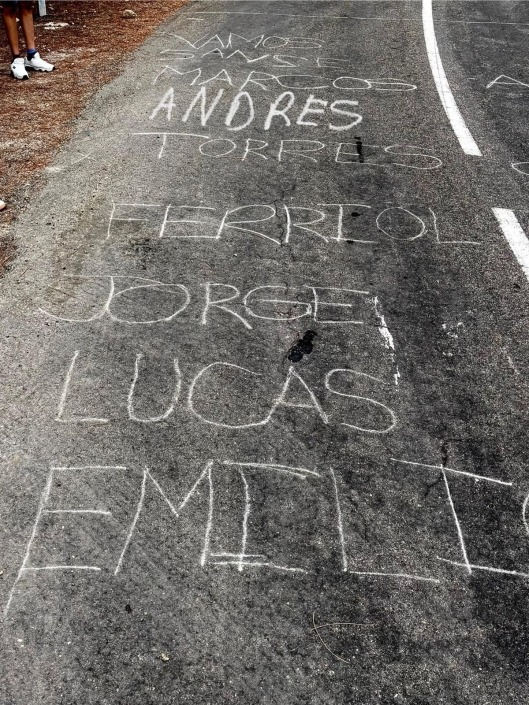 VAMOS
DANSE
MARCOS
ANDRES
TORRES
FERRIOL
JORGE
LUCAS
EMILIO